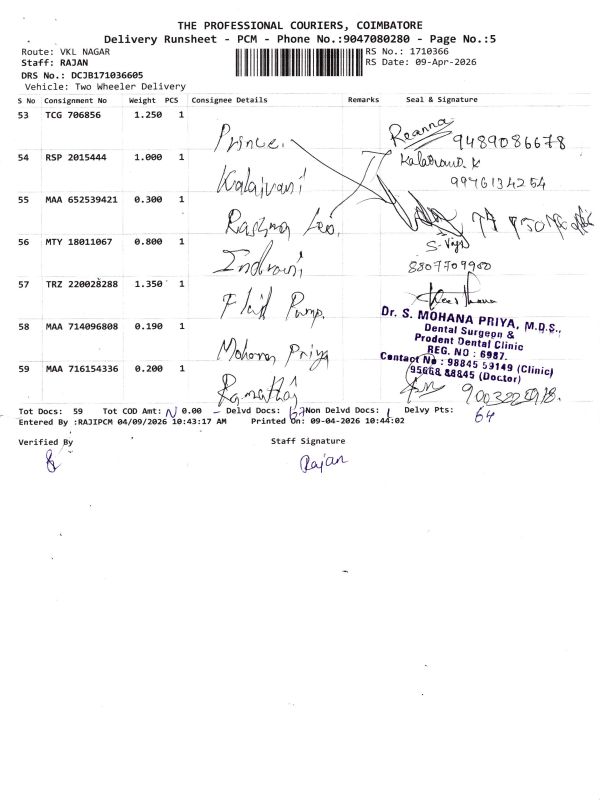 THE PROFESSIONAL COURIERS, COIMBATORE
Delivery Runsheet - PCM - Phone No.:9047080280 - Page No.:5
Route: VKL NAGAR
RS No.: 1710366
Staff: RAJAN
RS Date: 09-Apr-2026
DRS No.: DCJB171036605
Vehicle: Two Wheeler Delivery
S No Consignment No Weight PCS Consignee Details Remarks Seal & Signature
53 TCG 706856 1.250 1 Prince. Reanna 9489086678
54 RSP 2015444 1.000 1 Kalaivani 9976134254
55 MAA 652539421 0.300 1
56 MTY 18011067 0.800 1 Indrani 8807709900
57 TRZ 220028288 1.350 1 Fluid Pump.
58 MAA 714096808 0.190 1 Mohana Priya
Dr. S. MOHANA PRIYA, M.D.S.,
Dental Surgeon &
Prodent Dental Clinic
REG. NO : 6987.
Contact No : 98845 59149 (Clinic)
95668 88845 (Doctor)
59 MAA 716154336 0.200 1 Ramathaj
Tot Docs: 59 Tot COD Amt: 0.00 Delvd Docs: Non Delvd Docs: 1 Delvy Pts: 64
Entered By :RAJIPCM 04/09/2026 10:43:17 AM Printed On: 09-04-2026 10:44:02
Verified By Staff Signature
Rajan